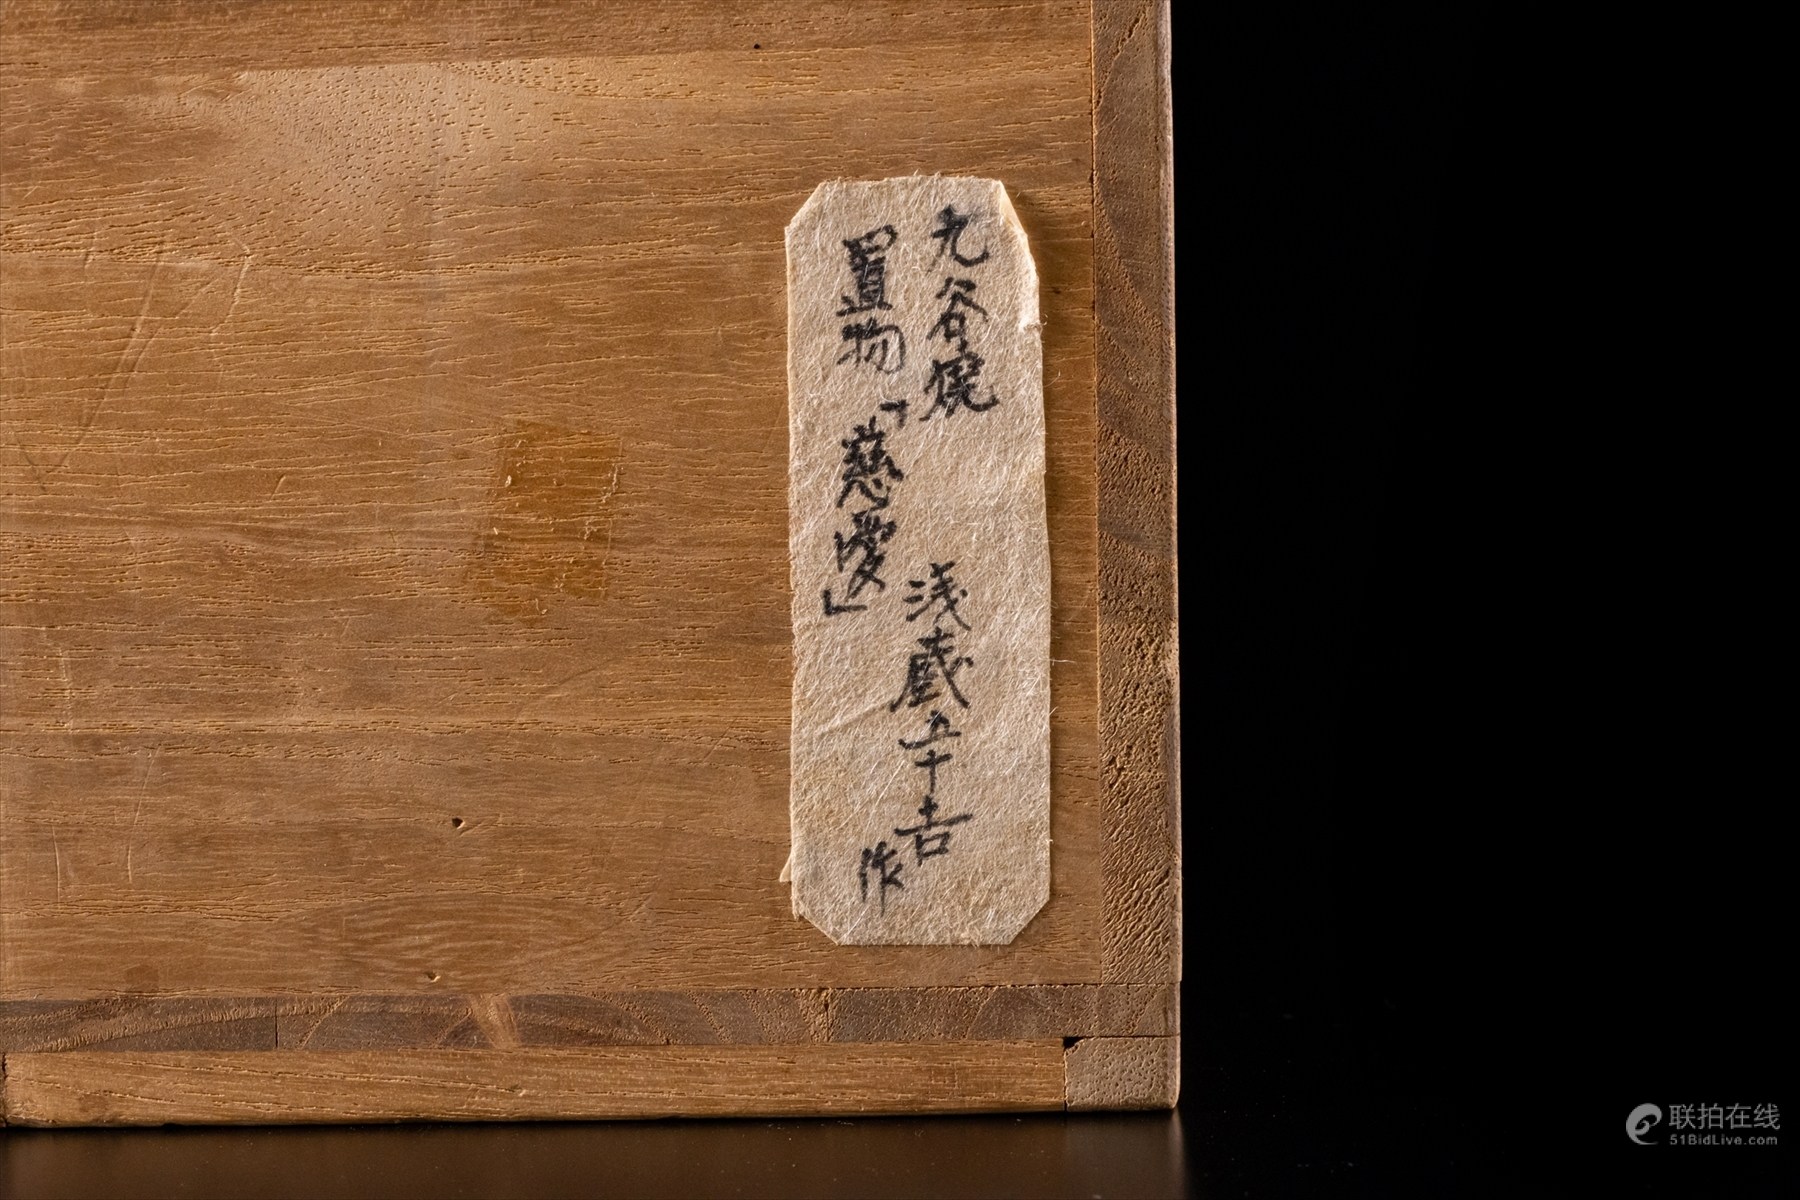 九谷焼 浅蔵五十吉 作
置物「慈愛」
联拍在线
51BidLive.com